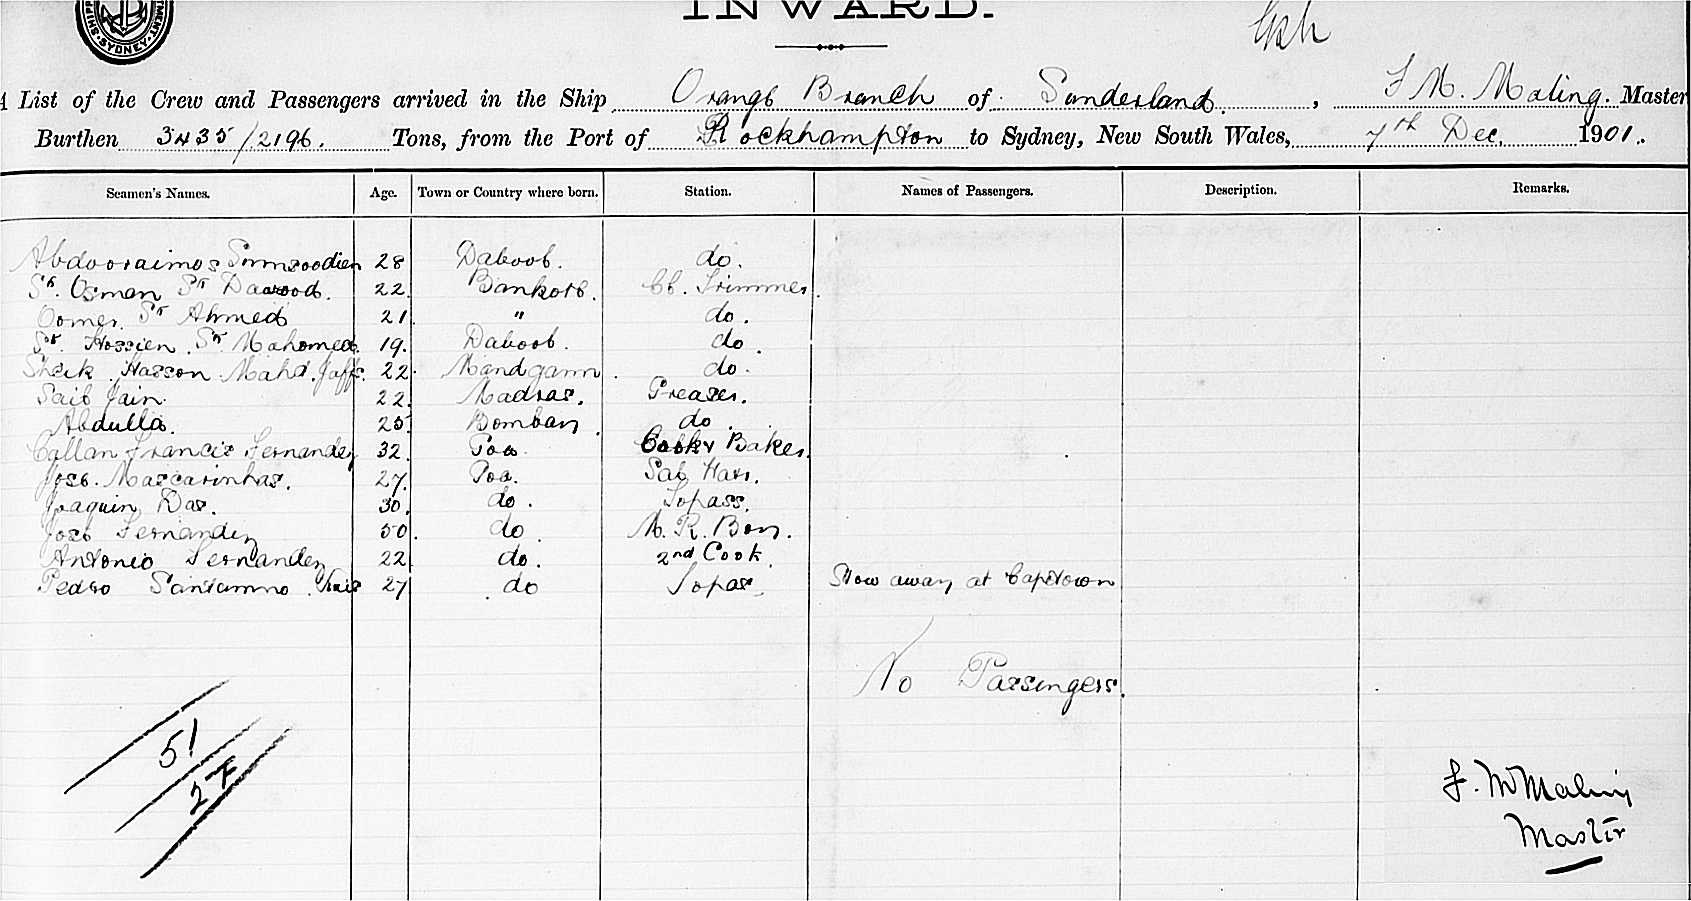 SHIPPING · SYDNEY · DEPARTMENT
INWARD.
A List of the Crew and Passengers arrived in the Ship Orange Branch of Sunderland, F M. Maling. Master
Burthen 3435/2196. Tons, from the Port of Rockhampton to Sydney, New South Wales, 7th Dec. 1901.
Seamen's Names. Age. Town or Country where born. Station. Names of Passengers. Description. Remarks.
28 Daboob. do.
Sk. Osman Sk Dawood. 22 Bankote. Ch. Trimmer.
Oomer. Sk Ahmed 21 " do.
Sk. Hossien. Sk. Mahomed. 19. Daboob. do.
Sheik Hasson Mahd. Jaffr. 22 do.
Saib Jain 22. Madras. Greaser.
Abdulla. 25. Bombay. do
Callan Francis Fernandez 32. Goa Baker.
Jose. Mascarinhas. 27. Goa.
Joaquin Das. 30. do. Topass.
Jose Fernandez 50. do. M. R. Boy.
Antonio Fernandez 22 do. 2nd Cook.
Pedro 27 do Topas. Stow away at Capetown
No Passengers.
51
27
F. M Maling
Master